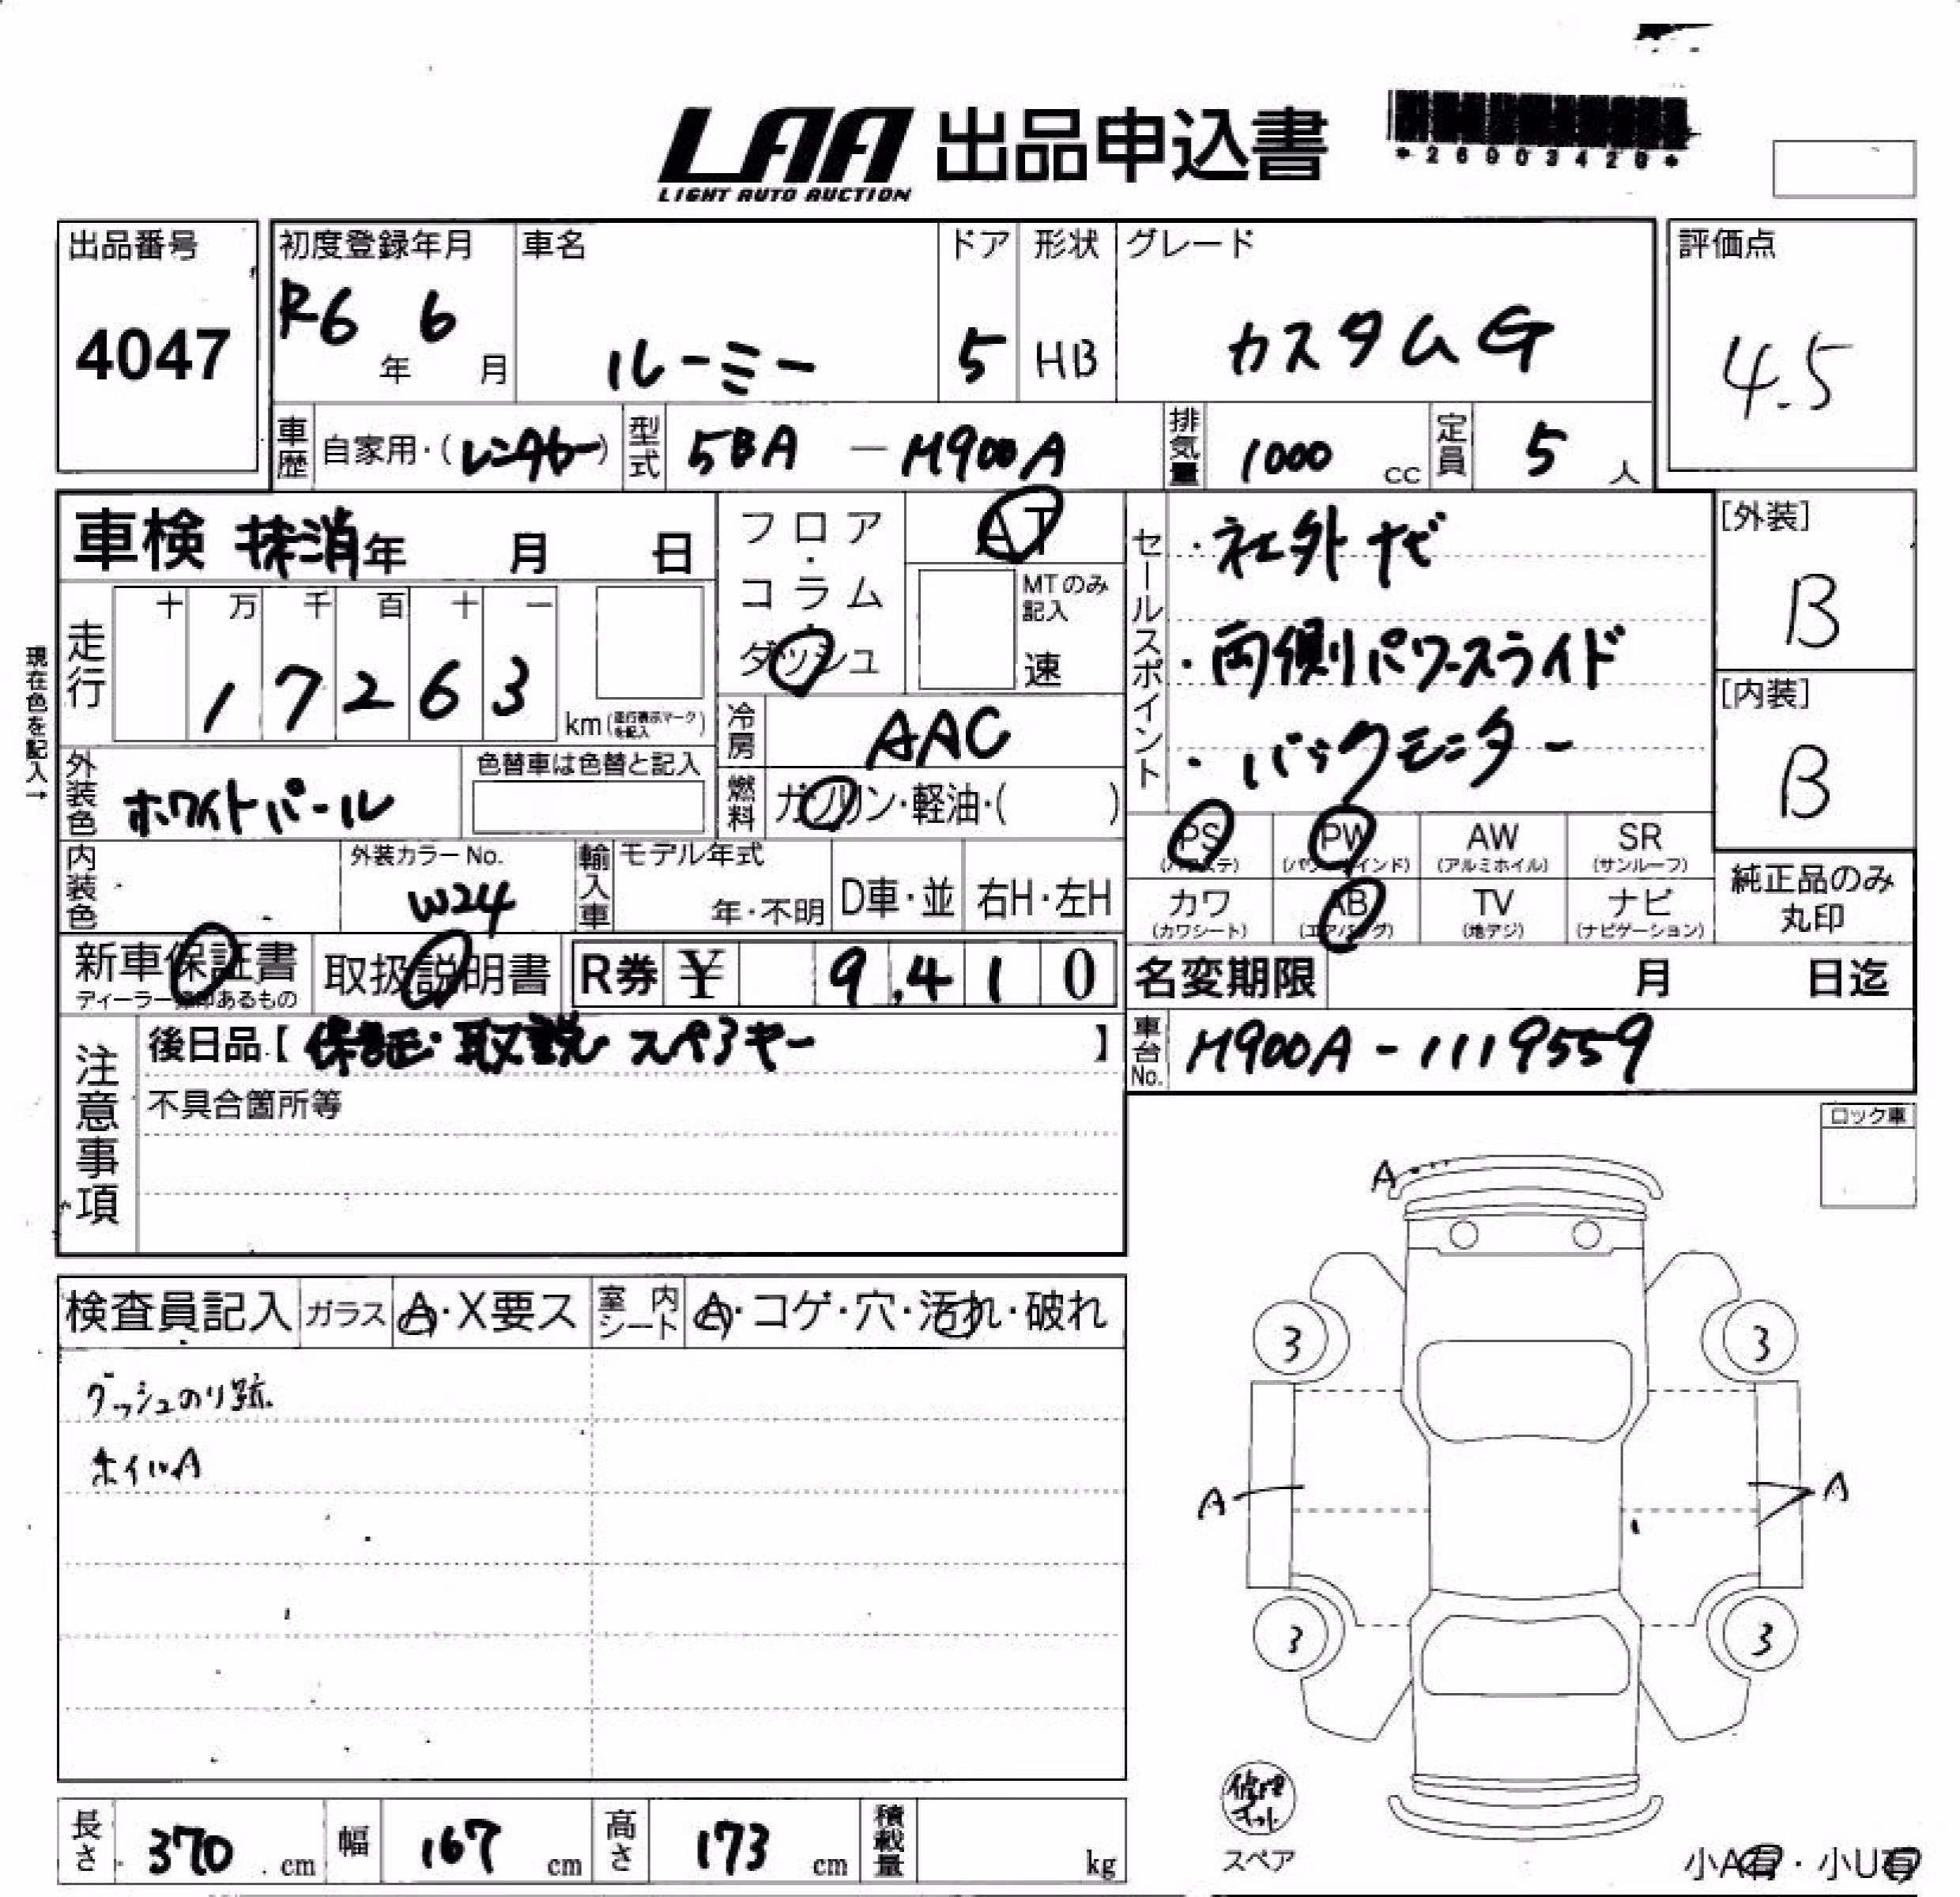 LAA 出品申込書
LIGHT AUTO AUCTION
*26903420*
出品番号
4047
初度登録年月
R6年 6月
車名
ルーミー
ドア
5
形状
HB
グレード
カスタムG
評価点
4.5
車歴 自家用・(レンタカー)
型式 5BA - M900A
排気量 1000 cc
定員 5 人
車検 抹消 年 月 日
フロア・コラム・ダッシュ
AT
MTのみ記入
速
セールスポイント
・社外ナビ
・両側パワースライド
・バックモニター
[外装]
B
[内装]
B
現在色を記入→
走行
十 万 千 百 十 一
1 7 2 6 3
km(走行表示マークを記入)
冷房 AAC
外装色 ホワイトパール
色替車は色替と記入
燃料 ガソリン・軽油・( )
PS (パワステ)
PW (パワーウインド)
AW (アルミホイル)
SR (サンルーフ)
カワ (カワシート)
AB (エアバッグ)
TV (地デジ)
ナビ (ナビゲーション)
純正品のみ丸印
内装色
外装カラーNo.
W24
輸入車
モデル年式
年・不明
D車・並
右H・左H
新車保証書
ディーラー捺印あるもの
取扱説明書
R券 ¥ 9,410
名変期限 月 日迄
注意事項
後日品【保証・取説 スペアキー】
不具合箇所等
車台No. M900A-1119559
ロック車
検査員記入
ガラス A・X要ス
室内シート A・コゲ・穴・汚れ・破れ
ダッシュのり跡.
ホイルA
A
3 3
A A
3 3
修理キット
スペア
小A有・小U有
長さ 370 cm
幅 167 cm
高さ 173 cm
積載量 kg